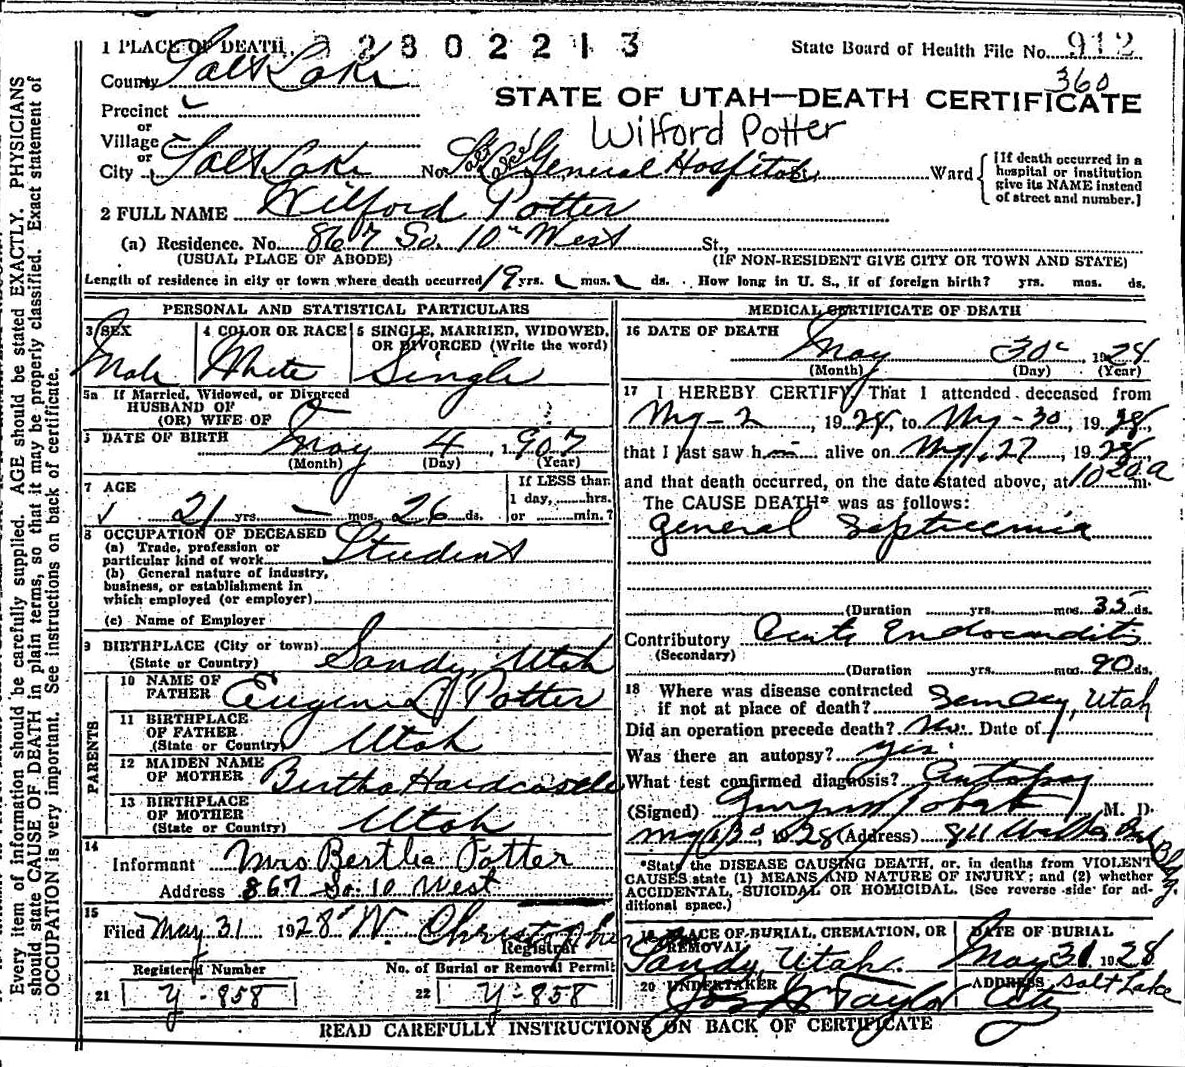 1 PLACE OF DEATH 2802213
State Board of Health File No. 912
County Salt Lake
360
Precinct
STATE OF UTAH—DEATH CERTIFICATE
or
Village
Wilford Potter
or
City Salt Lake No. Salt Lake General Hospital St., Ward
[If death occurred in a
hospital or institution
give its NAME instead
of street and number.]
2 FULL NAME Wilford Potter
(a) Residence. No. 867 So. 10th West St.,
(USUAL PLACE OF ABODE) (IF NON-RESIDENT GIVE CITY OR TOWN AND STATE)
Length of residence in city or town where death occurred 19 yrs. mos. ds. How long in U. S., if of foreign birth? yrs. mos. ds.
PERSONAL AND STATISTICAL PARTICULARS
3 SEX
Male
4 COLOR OR RACE
White
5 SINGLE, MARRIED, WIDOWED,
OR DIVORCED (Write the word)
Single
5a If Married, Widowed, or Divorced
HUSBAND OF
(OR) WIFE OF
6 DATE OF BIRTH May 4, 1907
(Month) (Day) (Year)
7 AGE
21 yrs. — mos. 26 ds.
If LESS than
1 day, hrs.
or min.?
8 OCCUPATION OF DECEASED
(a) Trade, profession or
particular kind of work Student
(b) General nature of industry,
business, or establishment in
which employed (or employer)
(c) Name of Employer
9 BIRTHPLACE (City or town)
(State or Country) Sandy, Utah
PARENTS
10 NAME OF
FATHER Eugene J Potter
11 BIRTHPLACE
OF FATHER
(State or Country) Utah
12 MAIDEN NAME
OF MOTHER Bertha Hardcastle
13 BIRTHPLACE
OF MOTHER
(State or Country) Utah
14
Informant Mrs Bertha Potter
Address 867 So. 10 West
15
Filed May 31 1928 W. Christopher
Registrar
Registered Number
21 Y-858
No. of Burial or Removal Permit
22 Y-858
MEDICAL CERTIFICATE OF DEATH
16 DATE OF DEATH
May 30 1928
(Month) (Day) (Year)
17 I HEREBY CERTIFY, That I attended deceased from
My-2, 1928, to My-30, 1928,
that I last saw him alive on My 27, 1928,
and that death occurred, on the date stated above, at 10 20 a m.
The CAUSE DEATH* was as follows:
General Septicemia
(Duration yrs. mos. 35 ds.
Contributory Acute Endocarditis
(Secondary)
(Duration yrs. mos. 90 ds.
18 Where was disease contracted
if not at place of death? Utah
Did an operation precede death? No. Date of
Was there an autopsy? yes
What test confirmed diagnosis? Autopsy
(Signed) M. D.
1928 (Address) 811 Walker Bk Bldg.
*State the DISEASE CAUSING DEATH, or, in deaths from VIOLENT
CAUSES state (1) MEANS AND NATURE OF INJURY; and (2) whether
ACCIDENTAL, SUICIDAL OR HOMICIDAL. (See reverse side for ad-
ditional space.)
19 PLACE OF BURIAL, CREMATION, OR
REMOVAL
Sandy, Utah.
DATE OF BURIAL
May 31 1928
20 UNDERTAKER
Jos W Taylor
ADDRESS Salt Lake
City
READ CAREFULLY INSTRUCTIONS ON BACK OF CERTIFICATE
Every item of information should be carefully supplied. AGE should be stated EXACTLY. PHYSICIANS
should state CAUSE OF DEATH in plain terms, so that it may be properly classified. Exact statement of
OCCUPATION is very important. See instructions on back of certificate.